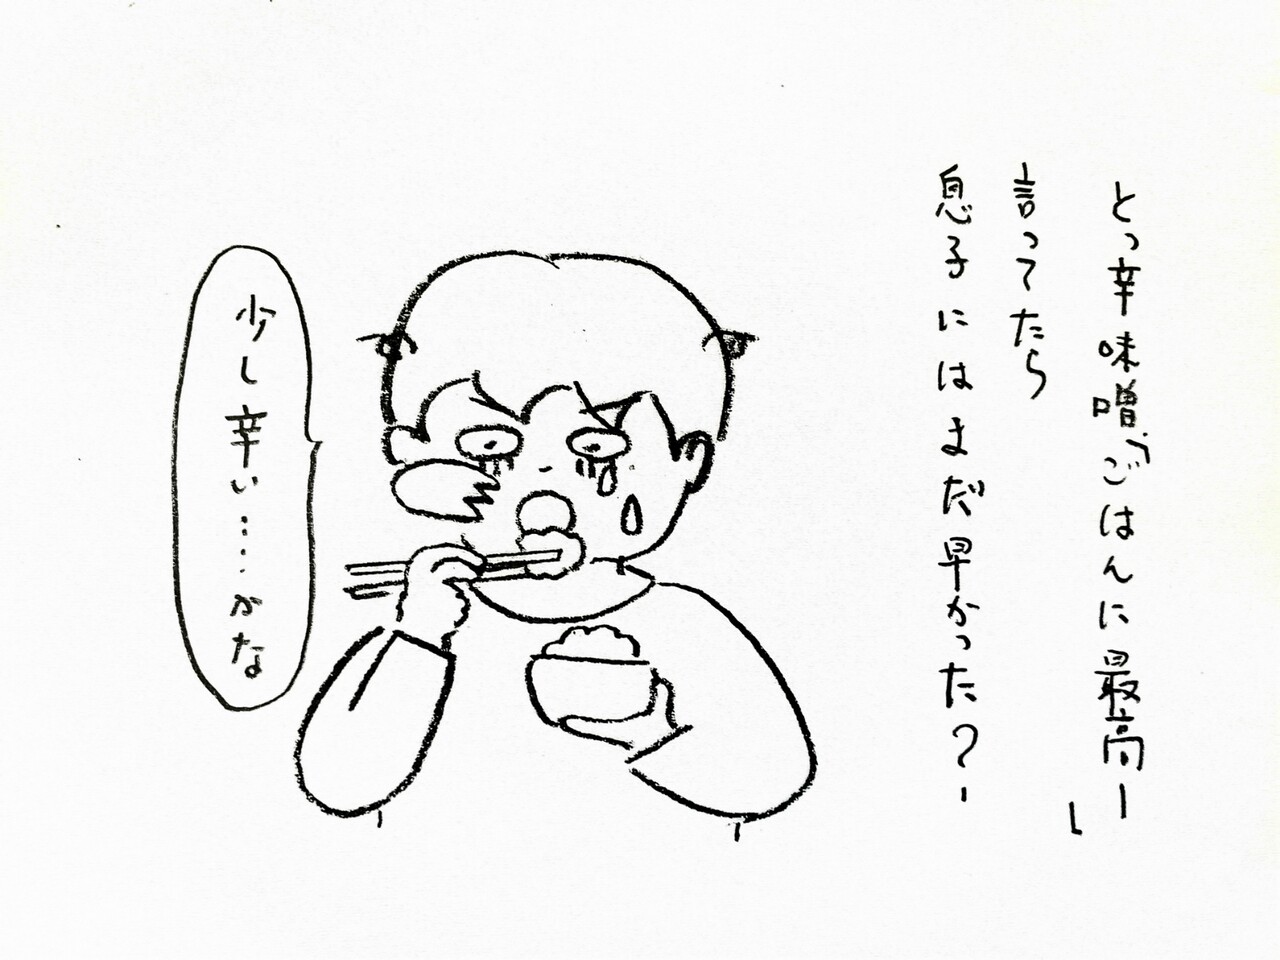 とっ辛味噌「ごはんに最高ー」
言ってたら
息子にはまだ早かった?ー
少し辛い….かな